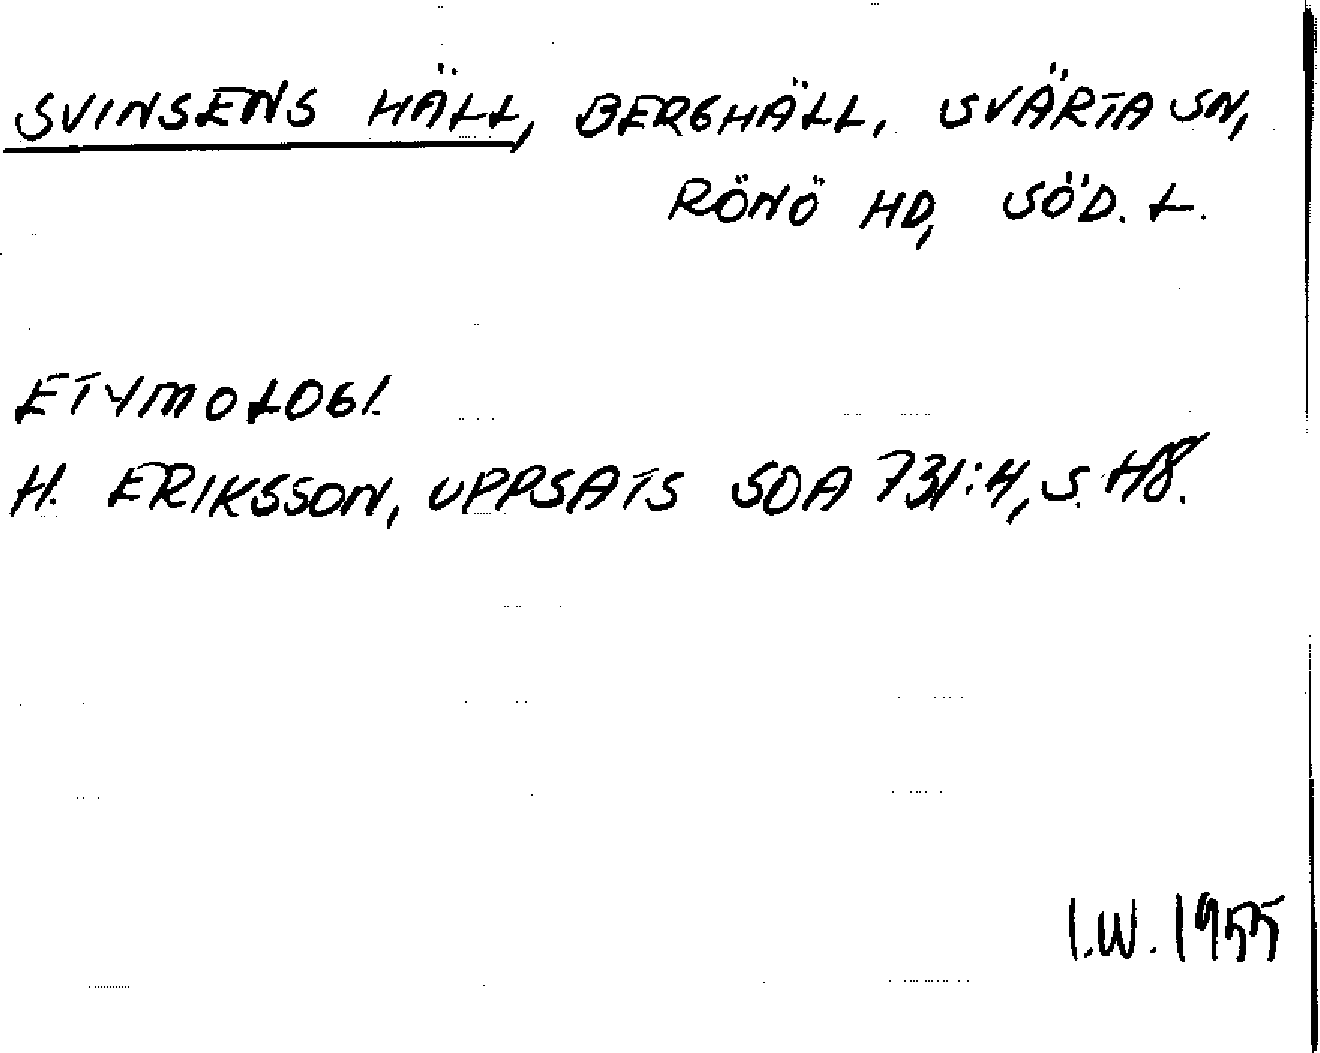 SVINSENS HÄLL, BERGHÄLL, SVÄRTA SN,
RÖNÖ HD, SÖD. L.
ETYMOLOGI.
H. ERIKSSON, UPPSATS SOA 731:4, S. 48.
I.W. 1955